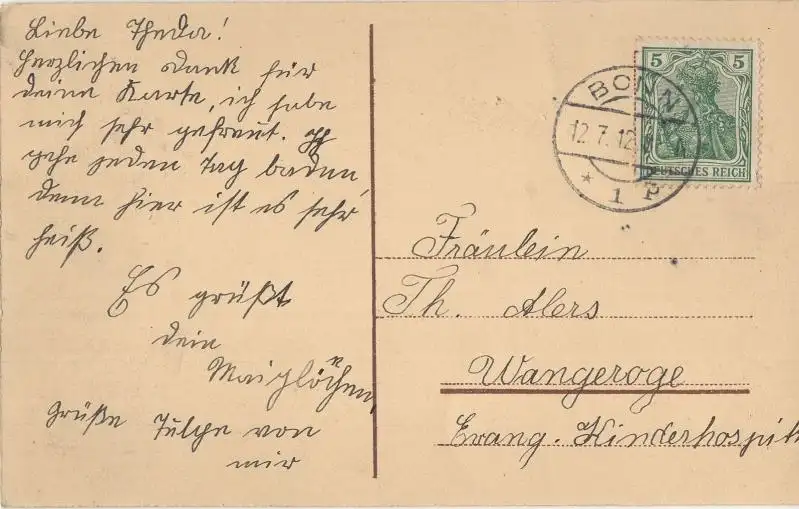 Liebe Theda!
Herzlichen Dank für
deine Karte, ich habe
mich sehr gefreut. Ich
gehe jeden Tag baden,
denn hier ist es sehr
heiß.
Es grüßt
dein
Maiglöckchen,
Grüße Tulpe von
mir
5 5
DEUTSCHES REICH
BONN
12.7.12
* 1 P
Fräulein
Th. Alers
Wangeroge
Evang. Kinderhospit